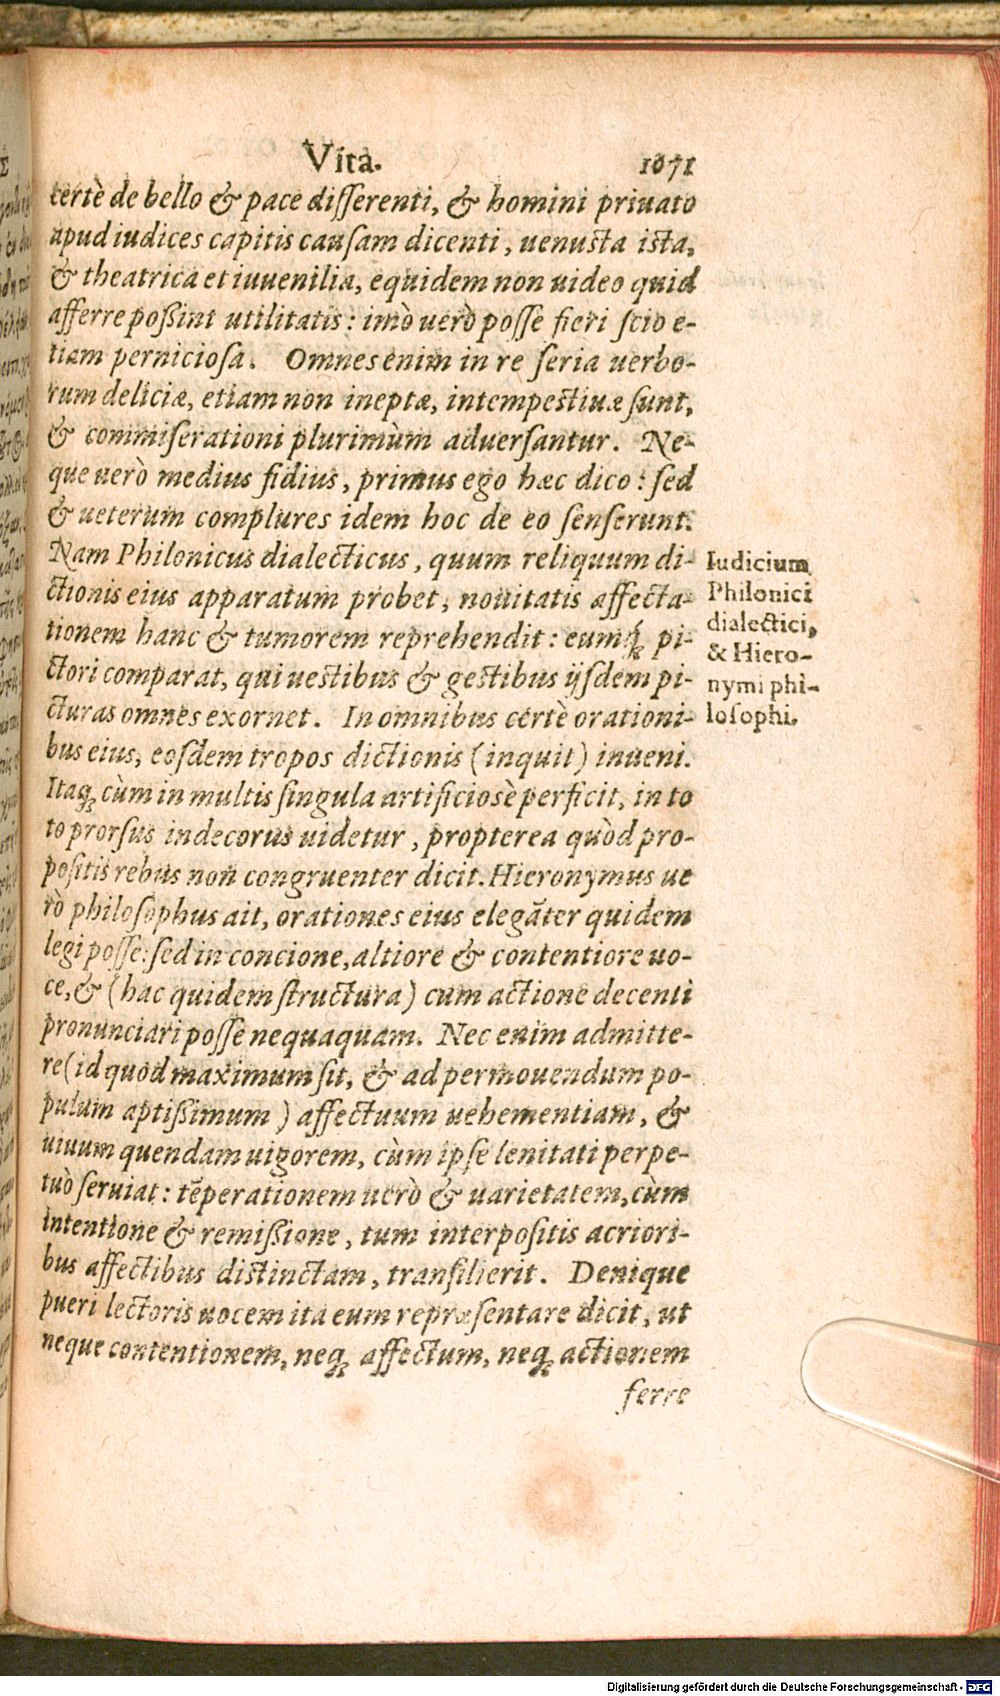 Vita. 1071
tertè de bello & pace differenti, & homini priuato
apud iudices capitis causam dicenti, uenusta ista,
& theatrica et iuuenilia, equidem non uideo quid
afferre poßint utilitatis: imò uerò posse fieri scio e-
tiam perniciosa. Omnes enim in re seria uerbo-
rum deliciæ, etiam non ineptæ, intempestiuæ sunt,
& commiserationi plurimùm aduersantur. Ne-
que uerò medius fidius, primus ego hæc dico: sed
& ueterum complures idem hoc de eo senserunt.
Nam Philonicus dialecticus, quum reliquum di-
ctionis eius apparatum probet, nouitatis affecta-
tionem hanc & tumorem reprehendit: eumq́; pi-
ctori comparat, qui uestibus & gestibus ijsdem pi-
cturas omnes exornet. In omnibus certè orationi-
bus eius, eosdem tropos dictionis (inquit) inueni.
Itaq; cùm in multis singula artificiosè perficit, in to
to prorsus indecorus uidetur, propterea quòd pro-
positis rebus non congruenter dicit. Hieronymus ue
rò philosophus ait, orationes eius elegāter quidem
legi posse: sed in concione, altiore & contentiore uo-
ce, & (hac quidem structura) cum actione decenti
pronunciari posse nequaquam. Nec enim admitte-
re (id quod maximum sit, & ad permouendum po-
pulum aptißimum) affectuum uehementiam, &
uiuum quendam uigorem, cùm ipse lenitati perpe-
tuò seruiat: tēperationem uerò & uarietatem, cùm
intentione & remißione, tum interpositis acriori-
bus affectibus distinctam, transilierit. Denique
pueri lectoris uocem ita eum repræsentare dicit, ut
neque contentionem, neq; affectum, neq; actionem
ferre
Iudicium
Philonici
dialectici,
& Hiero-
nymi phi-
losophi.
Digitalisierung gefördert durch die Deutsche Forschungsgemeinschaft - DFG